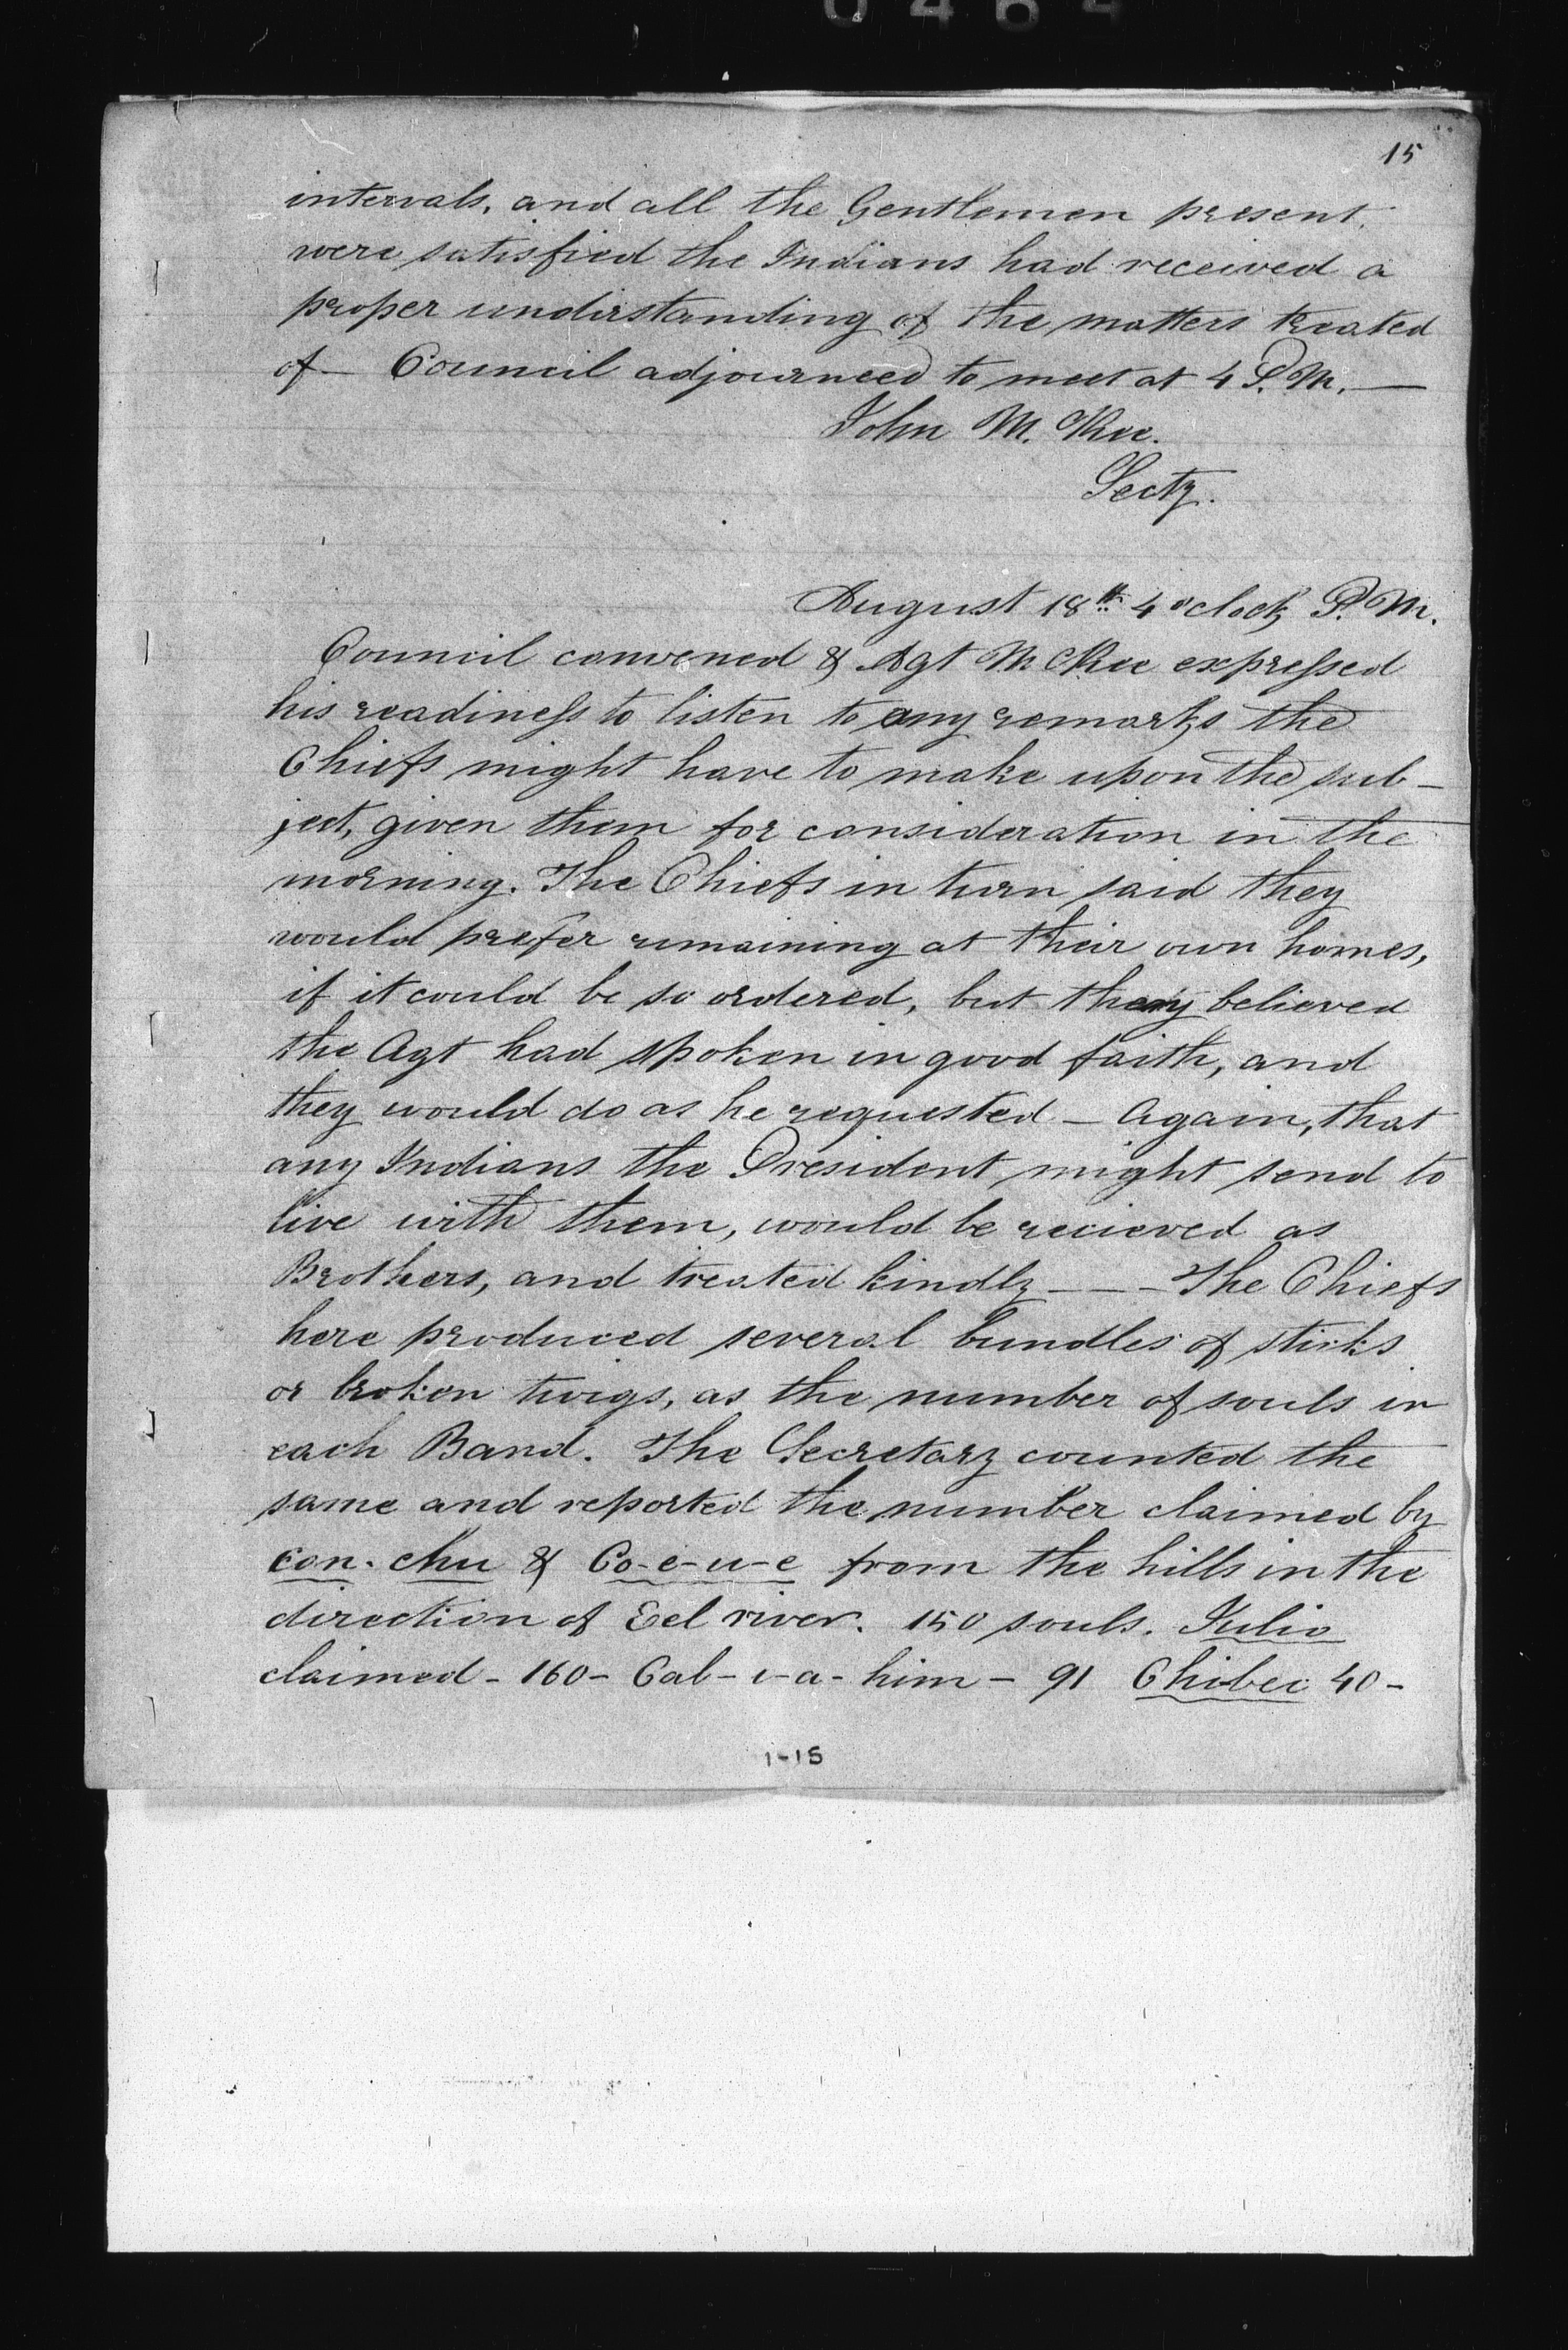 0464
15
intervals, and all the Gentlemen present,
were satisfied the Indians had received a
proper understanding of the matters treated
of — Council adjourned to meet at 4 P.M. —
John McKee.
Secty.
August 18th 4 o'clock P.M.
Council convened & Agt McKee expressed
his readiness to listen to any remarks the
Chiefs might have to make upon the sub-
ject, given them for consideration in the
morning. The Chiefs in turn said they
would prefer remaining at their own homes,
if it could be so ordered, but they believed
the Agt had spoken in good faith, and
they would do as he requested — Again, that
any Indians the President might send to
live with them, would be recieved as
Brothers, and treated kindly — — — The Chiefs
here produced several bundles of sticks
or broken twigs, as the number of souls in
each Band. The Secretary counted the
same and reported the number claimed by
Con-chu & Co-e-u-e from the hills in the
direction of Eel river. 150 souls. Julio
claimed - 160 - Cal-i-a-him - 91 Chibec 40 -
1-15